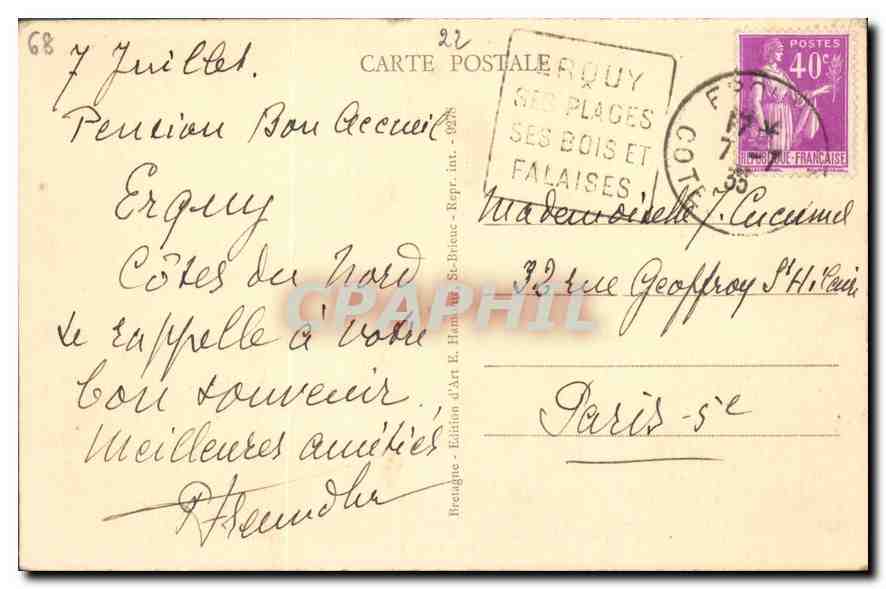 68
22
7 Juillet.
Pension Bon Accueil
Erquy
Côtes du Nord
se rappelle à votre
bon souvenir.
Meilleures amitiés
CARTE POSTALE
ERQUY
SES PLAGES
SES BOIS ET
FALAISES
POSTES
40c
REPUBLIQUE-FRANCAISE
17
7 - 7
35
COTES
Mademoiselle J.
32 rue Geoffroy St Hilaire
Paris - 5e
Bretagne - Edition d'Art E. St-Brieuc - Repr. int. - 9278
CPAPHIL